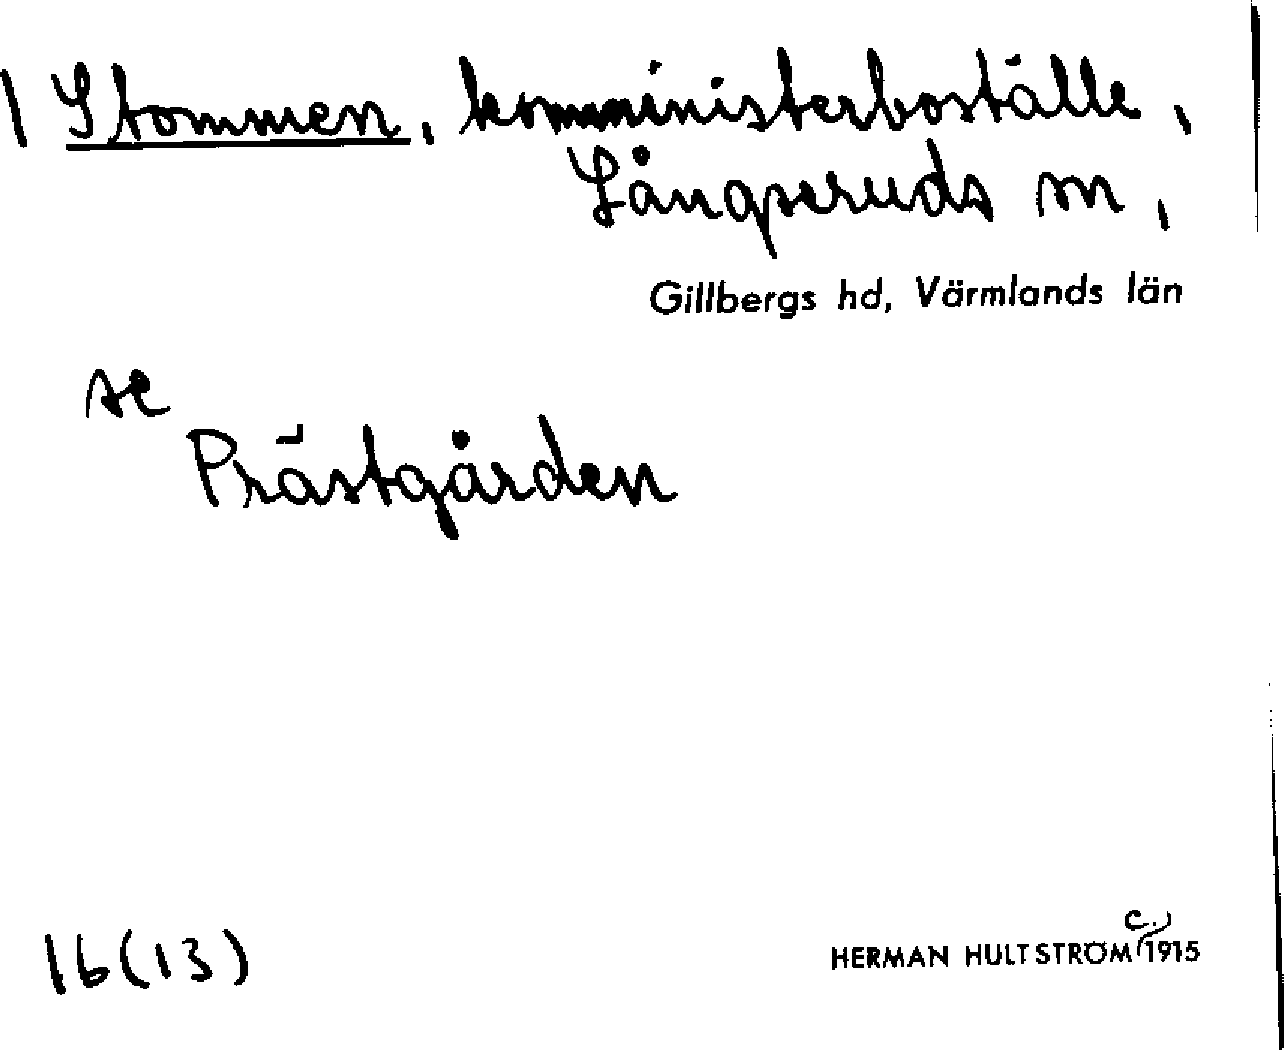 1 Stommen, komministerboställe,
Långseruds sn,
Gillbergs hd, Värmlands län
se
Prästgården
16(13)
HERMAN HULTSTRÖM c. 1915